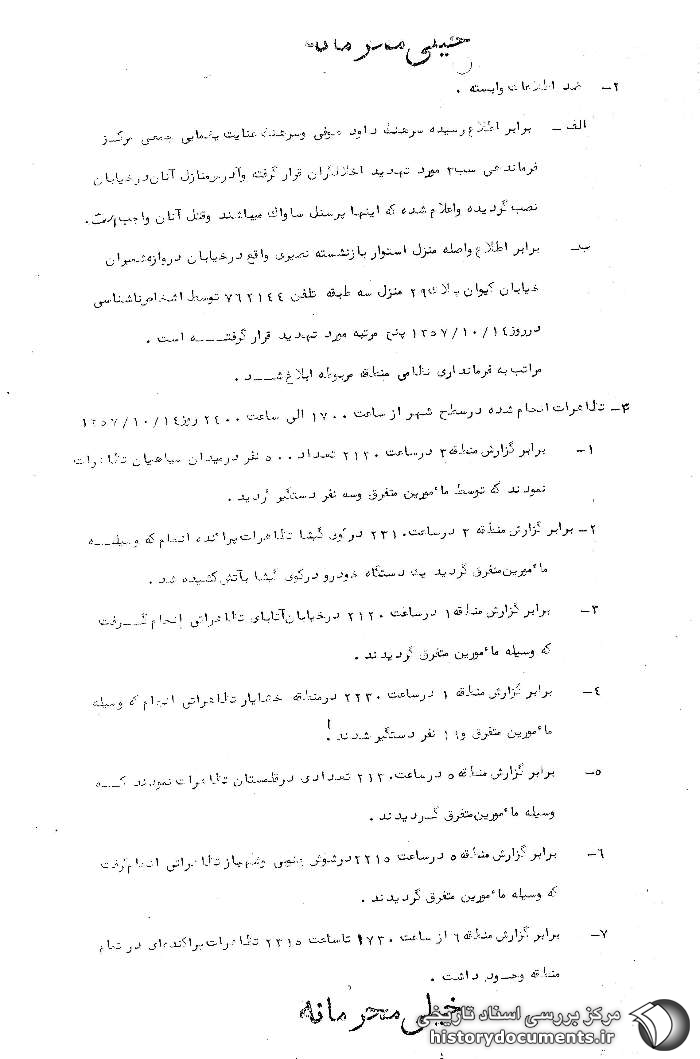 خیلی محرمانه
۲- ضد اطلاعات وابسته .
الف- برابر اطلاع رسیده سرهنگ داود صوفی وسرهنگ عنایت یغمایی جمعی مرکز
فرماندهی سب۳ مورد تهدید اخلالگران قرار گرفته وآدرس منازل آنان درخیابان
نصب گردیده واعلام شده که اینها پرسنل ساواک میباشند وقتل آنان واجب است.
ب- برابر اطلاع واصله منزل استوار بازنشسته نصیری واقع درخیابان دروازه شمیران
خیابان کیوان پلاک ۲۹ منزل سه طبقه تلفن ۷۶۲۱۴۴ توسط اشخاص ناشناسی
درروز ۱۳۵۷/۱۰/۱۴ پنج مرتبه مورد تهدید قرار گرفتــه است .
مراتب به فرمانداری نظامی منطقه مربوطه ابلاغ شــد .
۳- تظاهرات انجام شده درسطح شهر از ساعت ۱۷۰۰ الی ساعت ۲۴۰۰ روز ۱۳۵۷/۱۰/۱۴
۱- برابر گزارش منطقه ۲ درساعت ۲۱۲۰ تعداد ۵۰۰ نفر درمیدان سپاهیان تظاهرات
نمودند که توسط مأمورین متفرق وسه نفر دستگیر گردید .
۲- برابر گزارش منطقه ۲ درساعت ۲۳۱۰ درکوی گیشا تظاهرات پراکنده انجام که وسیلــه
مأمورین متفرق گردید یک دستگاه خودرو درکوی گیشا بآتش کشیده شد .
۳- برابر گزارش منطقه ۱ درساعت ۲۱۲۰ درخیابان آتابای تظاهراتی انجام گــرفت
که وسیله مأمورین متفرق گردیدند .
۴- برابر گزارش منطقه ۱ درساعت ۲۲۳۰ درمنطقه خشایار تظاهراتی انجام که وسیله
مأمورین متفرق و۱۱ نفر دستگیر شدند !
۵- برابر گزارش منطقه ۵ درساعت ۲۱۲۰ تعدادی درقلمستان تظاهرات نمودند کــه
وسیله مأمورین متفرق گــردیدند .
۶- برابر گزارش منطقه ۵ درساعت ۲۲۱۵ درشوش تظاهراتی انجام گرفت
که وسیله مأمورین متفرق گردیدند .
۷- برابر گزارش منطقه ۶ از ساعت ۱۷۳۰ تاساعت ۲۳۱۵ تظاهرات پراکنده‌ای در تمام
منطقه وجــود داشت .
خیلی محرمانه
مرکز بررسی اسناد تاریخی
historydocuments.ir